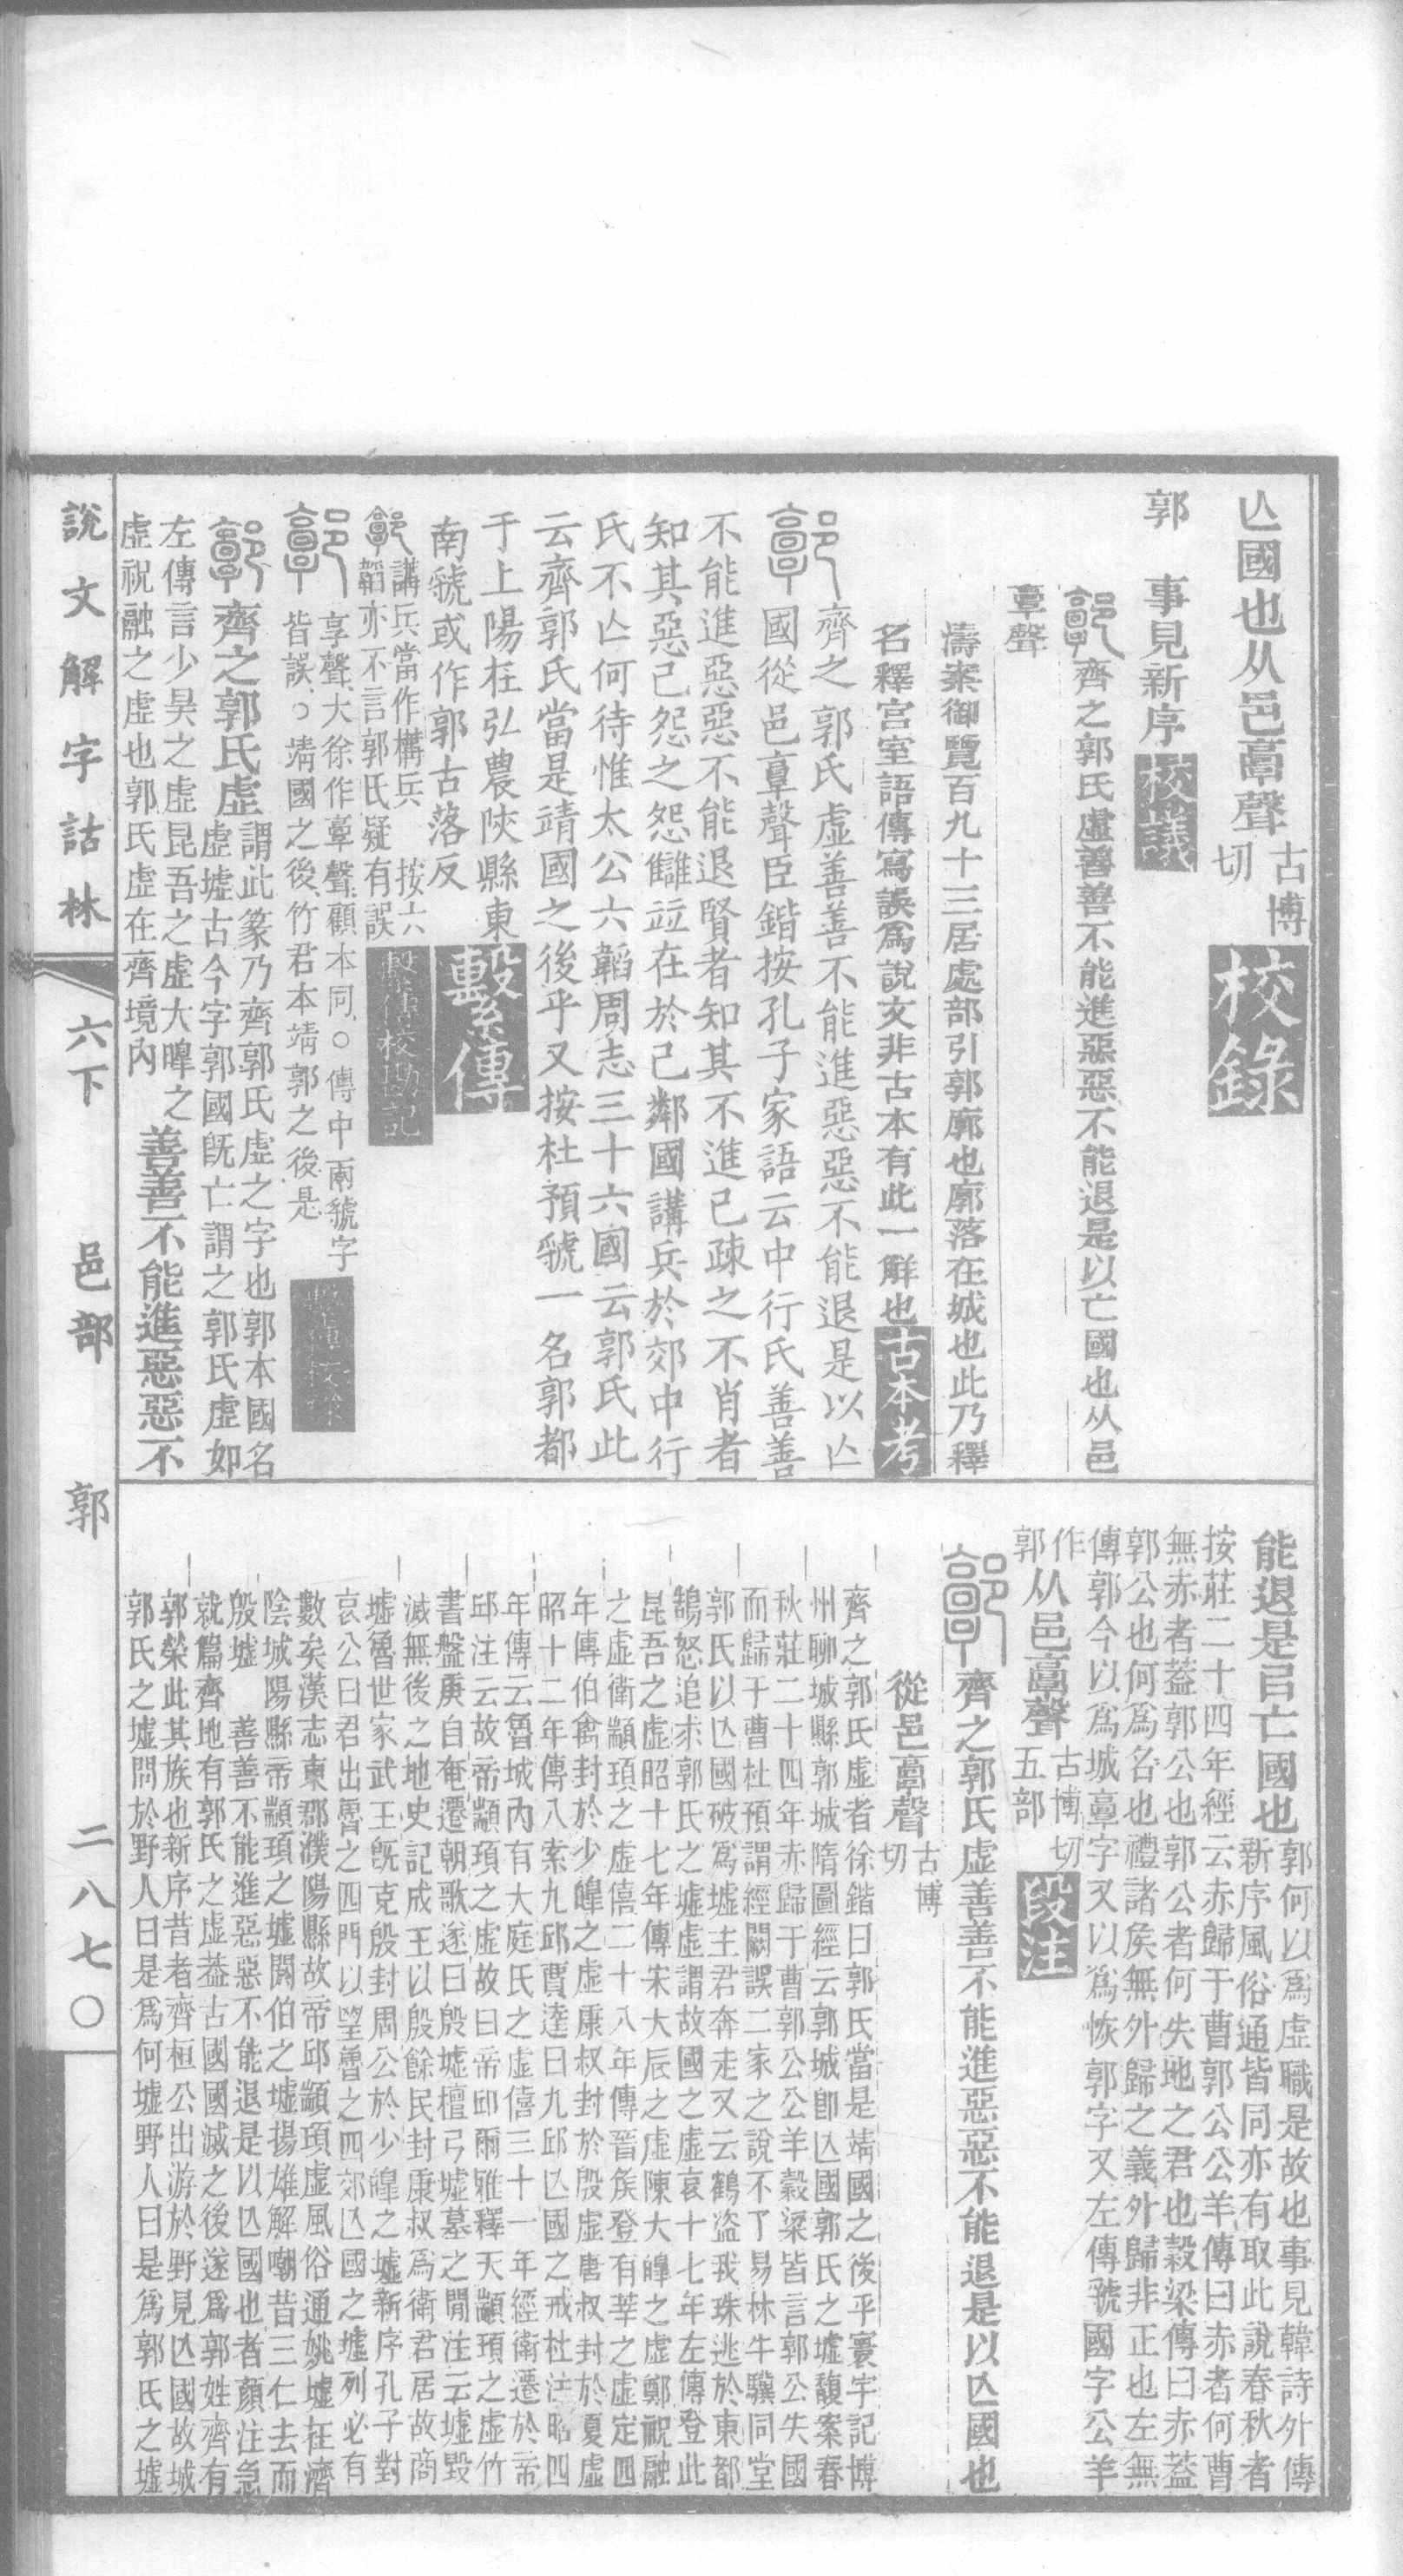 亾國也从邑𩫖聲古博切校錄
郭 事見新序校議
齊之郭氏虛善善不能進惡惡不能退是以亡國也从邑
𩫏聲
濤案御覽百九十三居處部引郭廓也廓落在城也此乃釋
名釋宮室語傳寫誤爲說文非古本有此一解也古本考
齊之郭氏虛善善不能進惡惡不能退是以亾
國從邑𩫏聲臣鍇按孔子家語云中行氏善善
不能進惡惡不能退賢者知其不進己疎之不肖者
知其惡己怨之怨讎竝在於己鄰國講兵於郊中行
氏不亾何待惟太公六韜周志三十六國云郭氏此
云齊郭氏當是靖國之後乎又按杜預虢一名郭都
于上陽在弘農陝縣東
南虢或作郭古落反繫傳
講兵當作構兵 按六
韜亦不言郭氏疑有誤繫傳校勘記
享聲大徐作𩫏聲顧本同○傳中兩虢字
皆誤○靖國之後竹君本靖郭之後是
齊之郭氏虛謂此篆乃齊郭氏虛之字也郭本國名
虛墟古今字郭國旣亡謂之郭氏虛如
左傳言少昊之虛昆吾之虛大皥之
虛祝融之虛也郭氏虛在齊境內善善不能進惡惡不
能退是㠯亡國也郭何以爲虛職是故也事見韓詩外傳
新序風俗通皆同亦有取此說春秋者
按莊二十四年經云赤歸于曹郭公公羊傳曰赤者何曹
無赤者葢郭公也郭公者何失地之君也穀梁傳曰赤葢
郭公也何爲名也禮諸矦無外歸之義外歸非正也左無
傳郭今以爲城𩫏字又以爲恢郭字又左傳虢國字公羊
作
郭从邑𩫖聲古博切五部段注
齊之郭氏虛善善不能進惡惡不能退是以亾國也
從邑𩫖聲古博切
齊之郭氏虛者徐鍇曰郭氏當是靖國之後乎寰宇記博
州聊城縣郭城隋圖經云郭城卽亾國郭氏之墟馥案春
秋莊二十四年赤歸于曹郭公公羊穀梁皆言郭公失國
而歸于曹杜預謂經闕誤二家之說不了易林牛驥同堂
郭氏以亾國破爲墟主君奔走又云鶴盜我珠逃於東都
鵠怒追求郭氏之墟虛謂故國之虛哀十七年左傳登此
昆吾之虛昭十七年傳宋大辰之虛陳大皥之虛鄭祝融
之虛衛顓頊之虛僖二十八年傳晉矦登有莘之虛定四
年傳伯禽封於少皥之虛康叔封於殷虛唐叔封於夏虛
昭十二年傳八索九邱賈逵曰九邱亾國之戒杜注昭四
年傳云魯城內有大庭氏之虛僖三十一年經衛遷於帝
邱注云故帝顓頊之虛故曰帝邱爾雅釋天顓頊之虛竹
書盤庚自奄遷朝歌遂曰殷墟檀弓墟墓之閒注云墟毀
滅無後之地史記成王以殷餘民封康叔爲衛君居故商
墟魯世家武王旣克殷封周公於少皥之墟新序孔子對
哀公曰君出魯之四門以望魯之四郊亾國之墟列必有
數矣漢志東郡濮陽縣故帝邱顓頊虛風俗通姚墟在濟
陰城陽縣帝顓頊之墟閼伯之墟揚雄解嘲昔三仁去而
殷墟 善善不能進惡惡不能退是以亾國也者顏注急
就篇齊地有郭氏之虛葢古國國滅之後遂爲郭姓齊有
郭榮此其族也新序昔者齊桓公出游於野見亾國故城
郭氏之墟問於野人曰是爲何墟野人曰是爲郭氏之墟
說文解字詁林 六下 邑部 郭 二八七〇